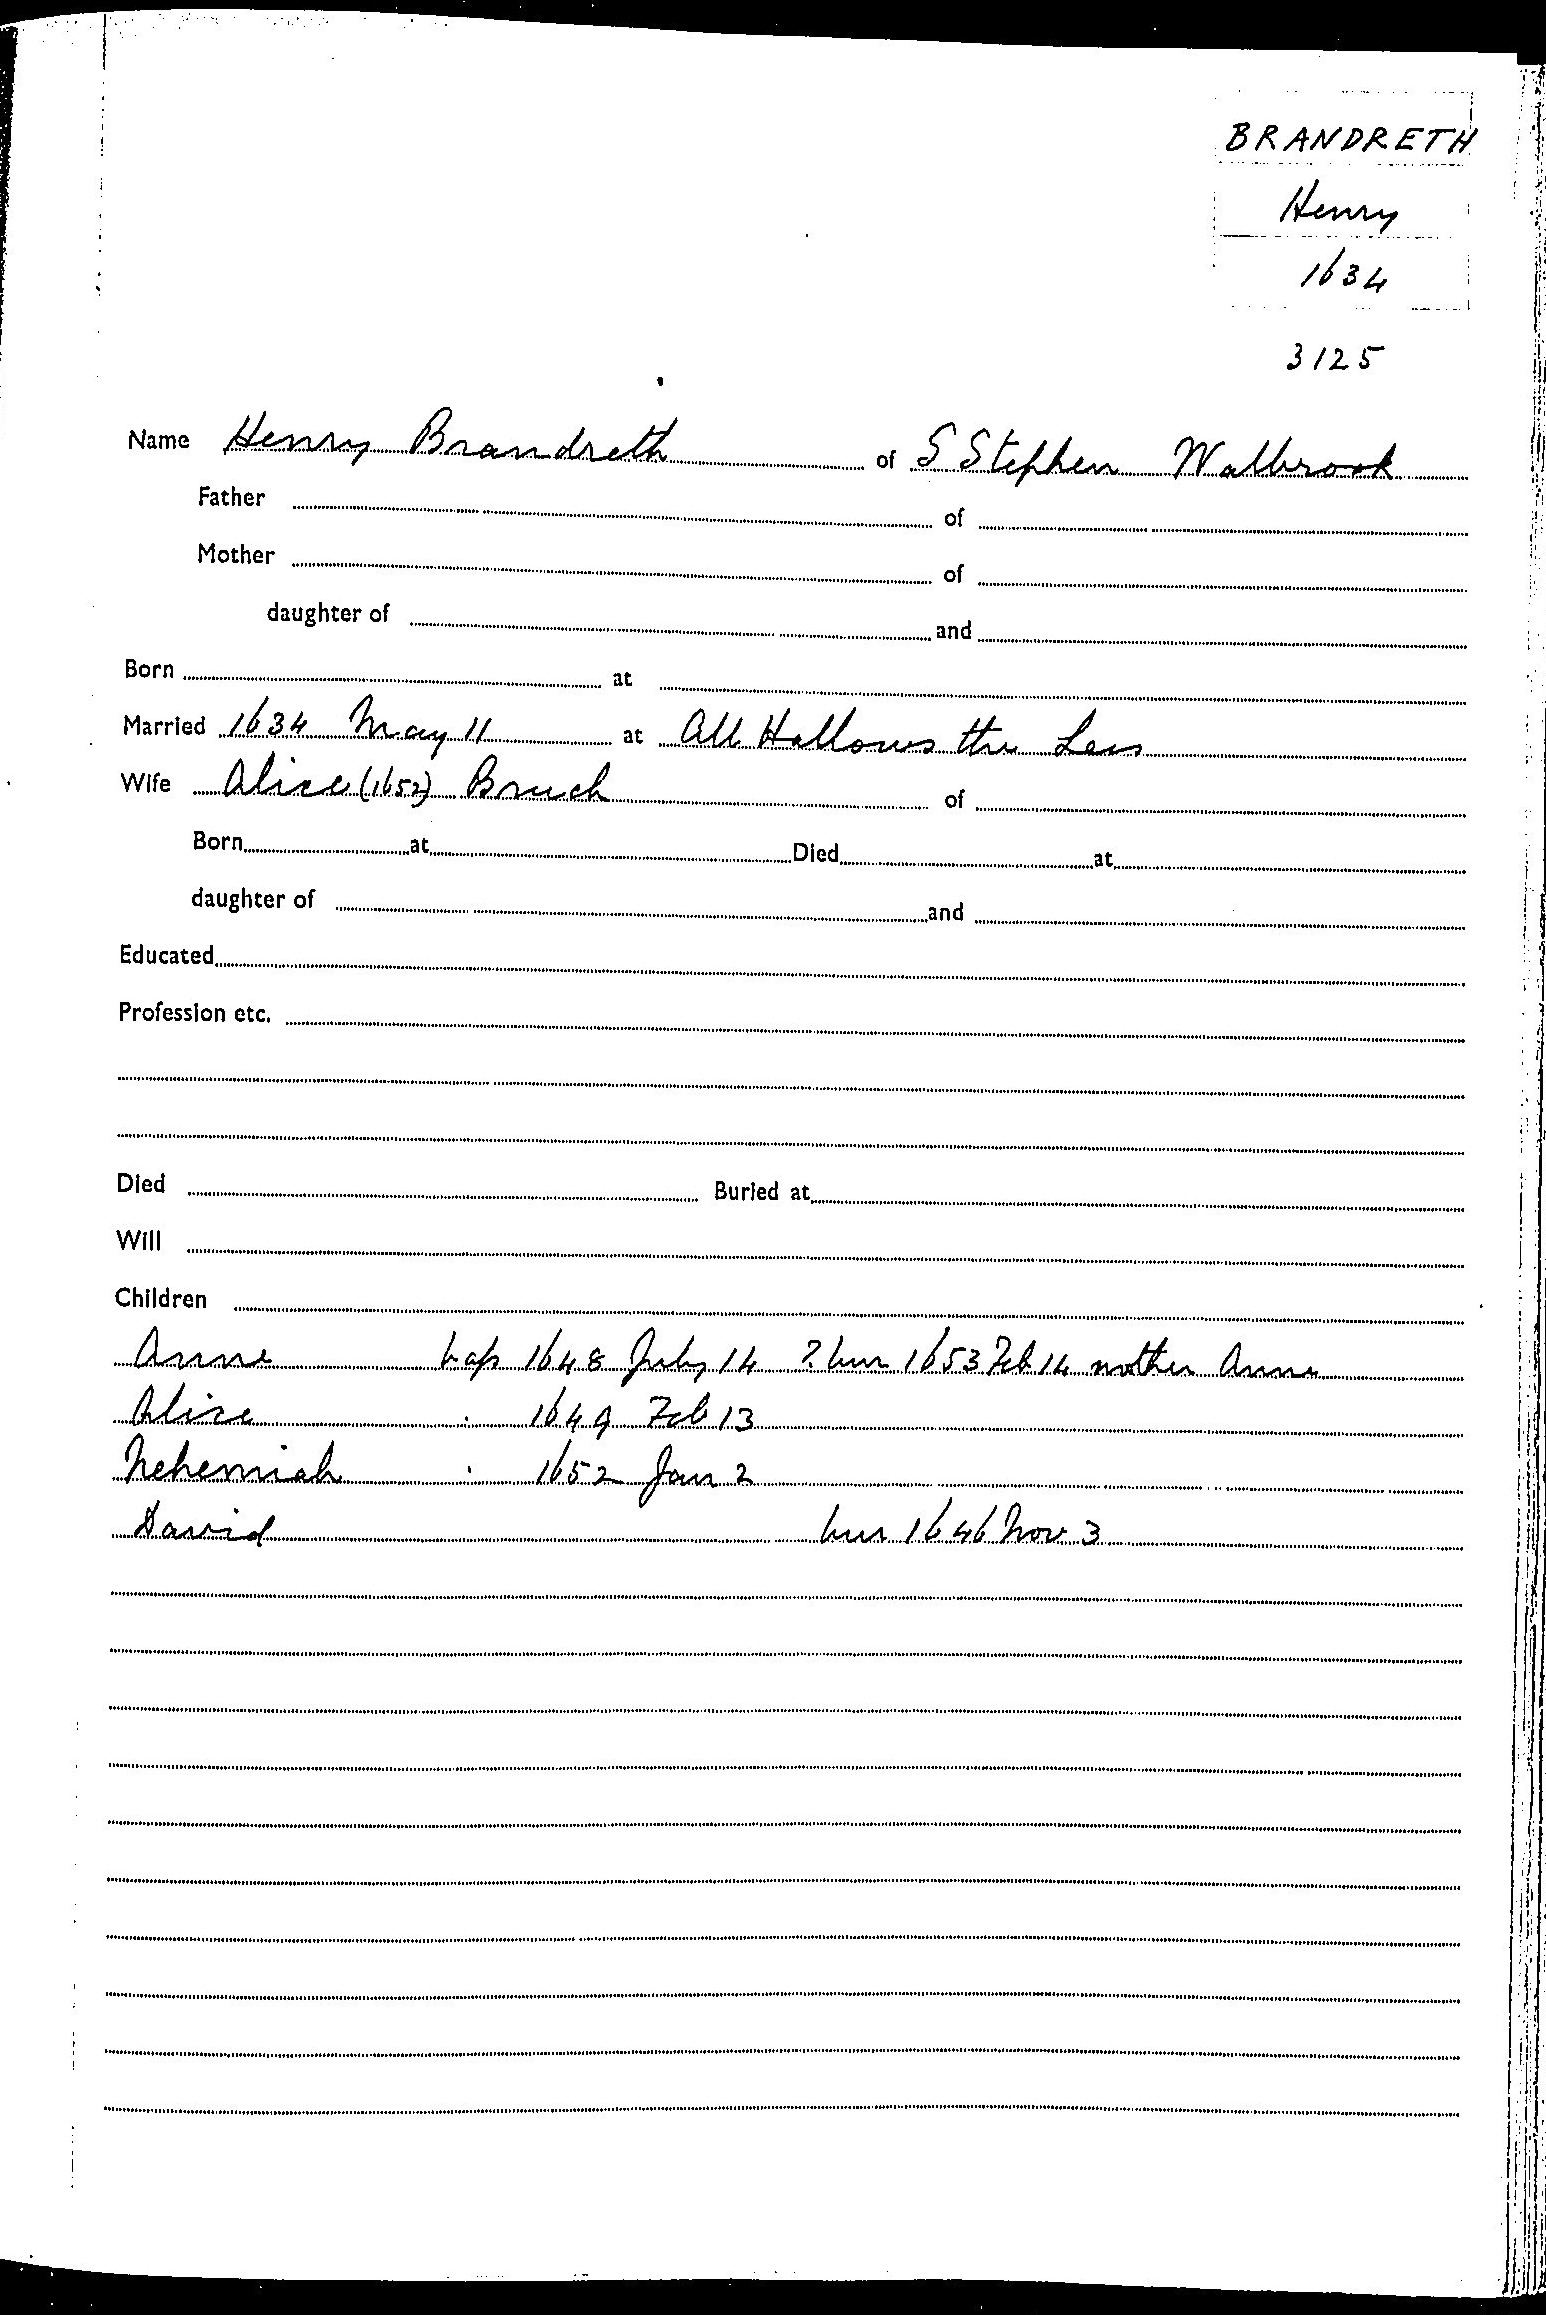 BRANDRETH
Henry
1634
3125
Name Henry Brandreth of S Stephen Walbrook
Father of
Mother of
daughter of and
Born at
Married 1634 May 11 at All Hallows the Less
Wife Alice (1652) Bruch of
Born at Died at
daughter of and
Educated
Profession etc.
Died Buried at
Will
Children
Anne bap 1648 July 14 ? bur 1653 Feb 14 mother Anne
Alice . 1649 Feb 13
Nehemiah : 1652 Jan 2
David bur 1646 Nov 3